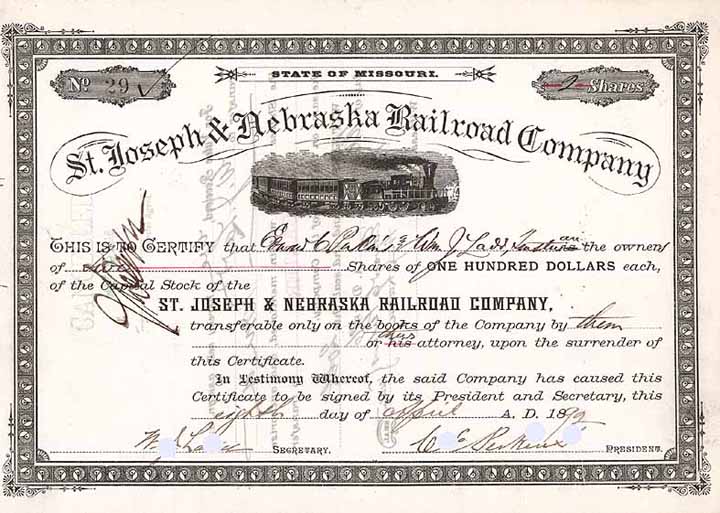 STATE OF MISSOURI.
No 29
2 Shares
St. Joseph & Nebraska Railroad Company
THIS IS TO CERTIFY that Wm. J. Ladd, Trustees are the owners
of Shares of ONE HUNDRED DOLLARS each,
of the Capital Stock of the
ST. JOSEPH & NEBRASKA RAILROAD COMPANY,
transferable only on the books of the Company by them
or his theirs attorney, upon the surrender of
this Certificate.
In Testimony Whereof, the said Company has caused this
Certificate to be signed by its President and Secretary, this
eighth day of April A. D. 1890
W. J. Ladd SECRETARY. C. E. Perkins PRESIDENT.